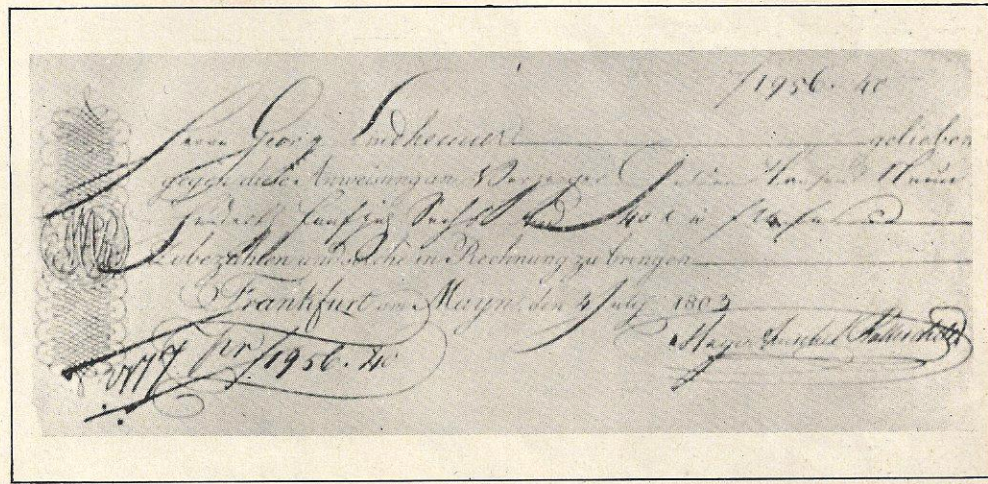 f 1956. 40
Herrn Georg geliebon
gegen diese Anweisung an Vorzeiger Tausend Neun
hundert fünfzig Sechs und 40 x
zu bezahlen und solche in Rechnung zu bringen
Frankfurt am Mayn den 4 July 1803
Mayer Amschel Rothschild
pr f 1956. 40